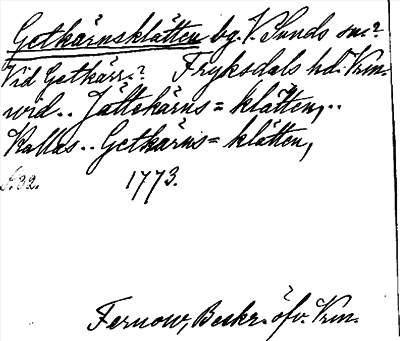 Getkärnsklätten bg. V. Sunds sn.?
Vid Getkärn? Fryksdals hd. Vrm.
wid.. Jättekärns=klätten,..
Kallas.. Getkärns=klätten,
s. 32. 1773.
Fernow, Beskr. öfv. Vrm.